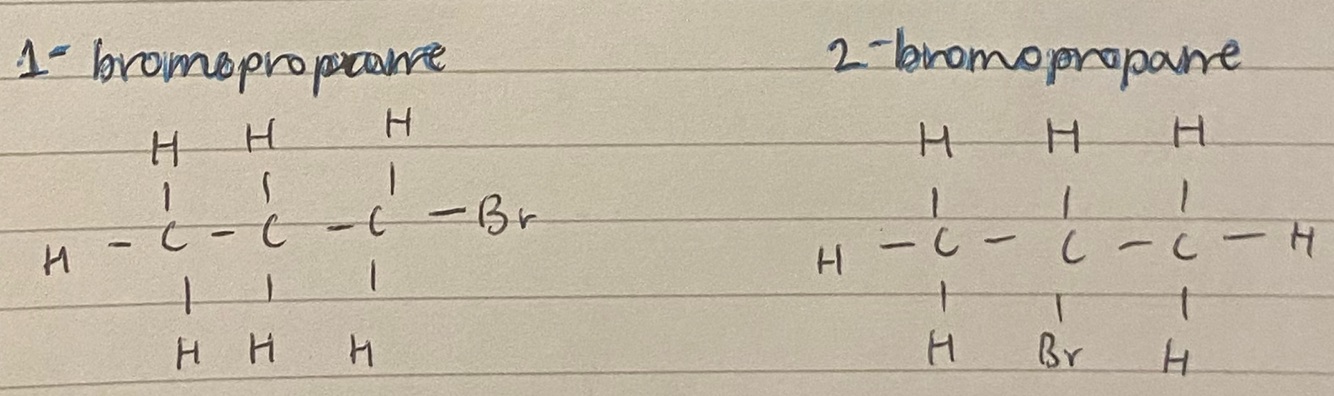 1- bromopropane 2-bromopropane
H H H H H H
H - C - C - C - Br H - C - C - C - H
H H H H Br H